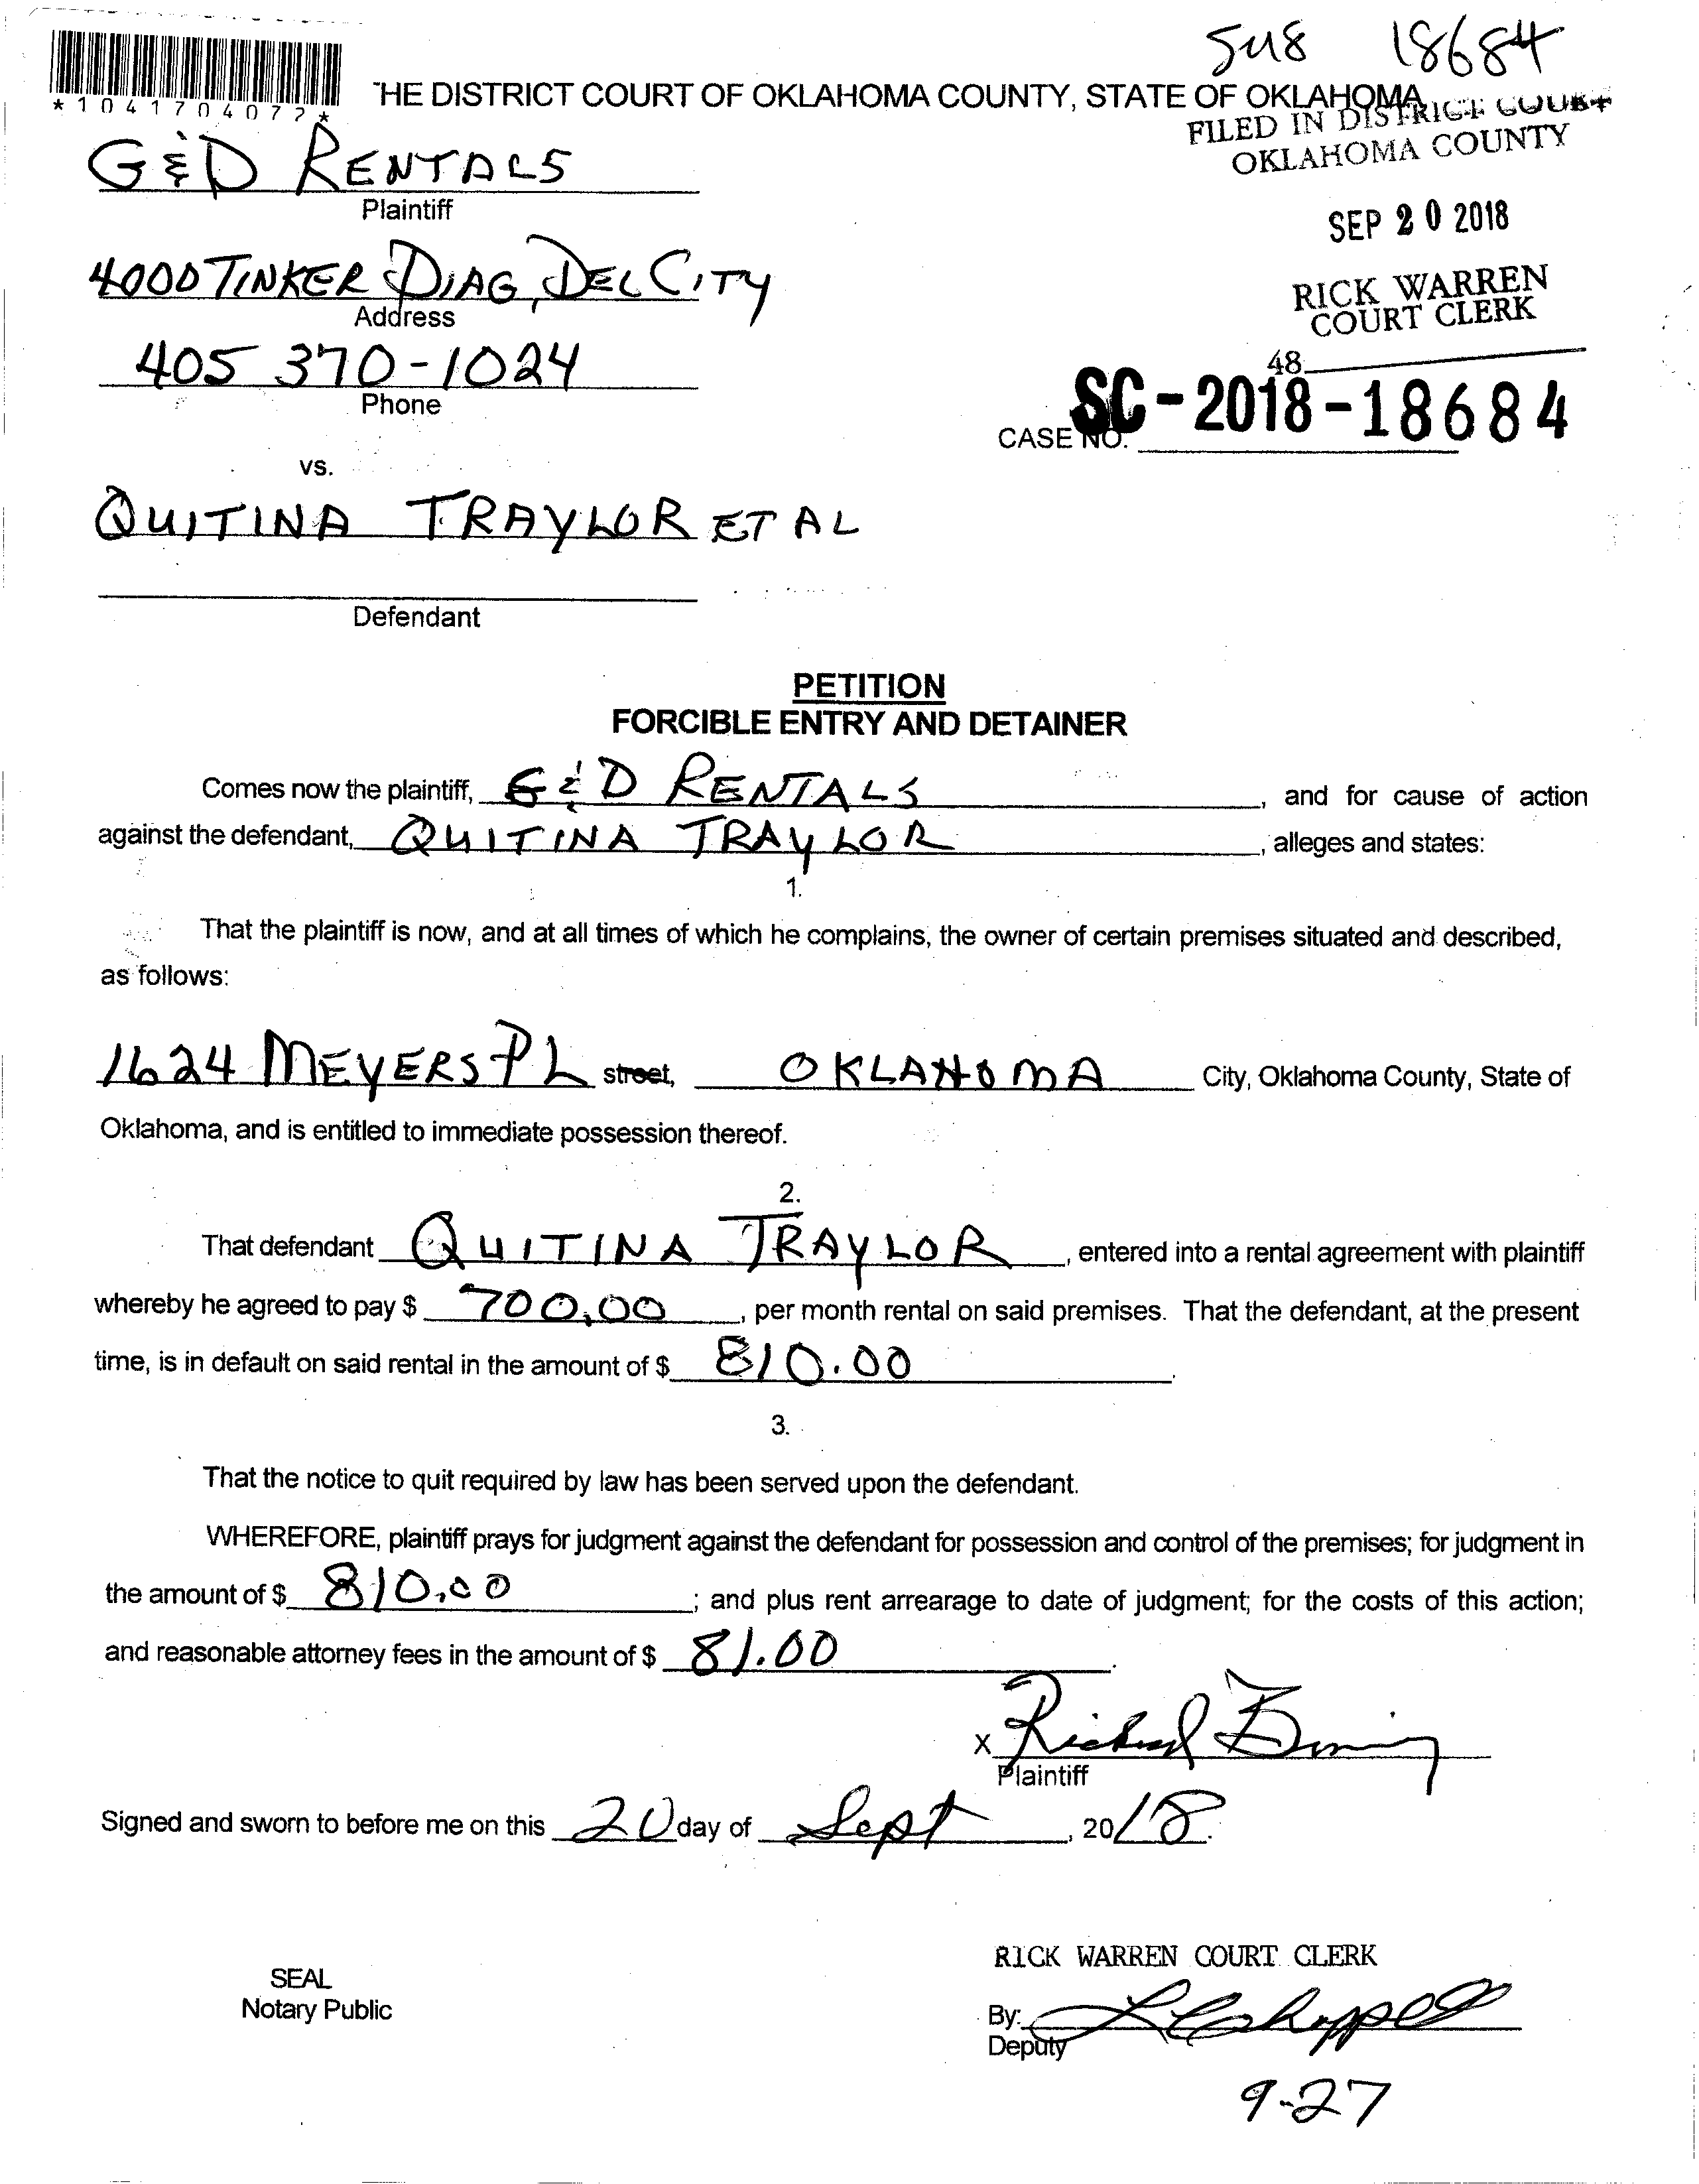 SM8 18684
*1041704072*
THE DISTRICT COURT OF OKLAHOMA COUNTY, STATE OF OKLAHOMA
FILED IN DISTRICT COURT
OKLAHOMA COUNTY
G & D RENTALS
Plaintiff
SEP 20 2018
4000 TINKER DIAG, DEL CITY
Address
RICK WARREN
COURT CLERK
405 370-1024
Phone
48
CASE NO. SC-2018-18684
vs.
QUITINA TRAYLOR ET AL
Defendant
PETITION
FORCIBLE ENTRY AND DETAINER
Comes now the plaintiff, G & D RENTALS, and for cause of action
against the defendant, QUITINA TRAYLOR, alleges and states:
1.
That the plaintiff is now, and at all times of which he complains, the owner of certain premises situated and described,
as follows:
1624 MEYERS PL street, OKLAHOMA City, Oklahoma County, State of
Oklahoma, and is entitled to immediate possession thereof.
2.
That defendant QUITINA TRAYLOR, entered into a rental agreement with plaintiff
whereby he agreed to pay $ 700.00, per month rental on said premises. That the defendant, at the present
time, is in default on said rental in the amount of $ 810.00.
3.
That the notice to quit required by law has been served upon the defendant.
WHEREFORE, plaintiff prays for judgment against the defendant for possession and control of the premises; for judgment in
the amount of $ 810.00; and plus rent arrearage to date of judgment; for the costs of this action;
and reasonable attorney fees in the amount of $ 81.00.
X Richard
Plaintiff
Signed and sworn to before me on this 20 day of Sept, 2018.
RICK WARREN COURT CLERK
SEAL
Notary Public
By:
Deputy
9-27